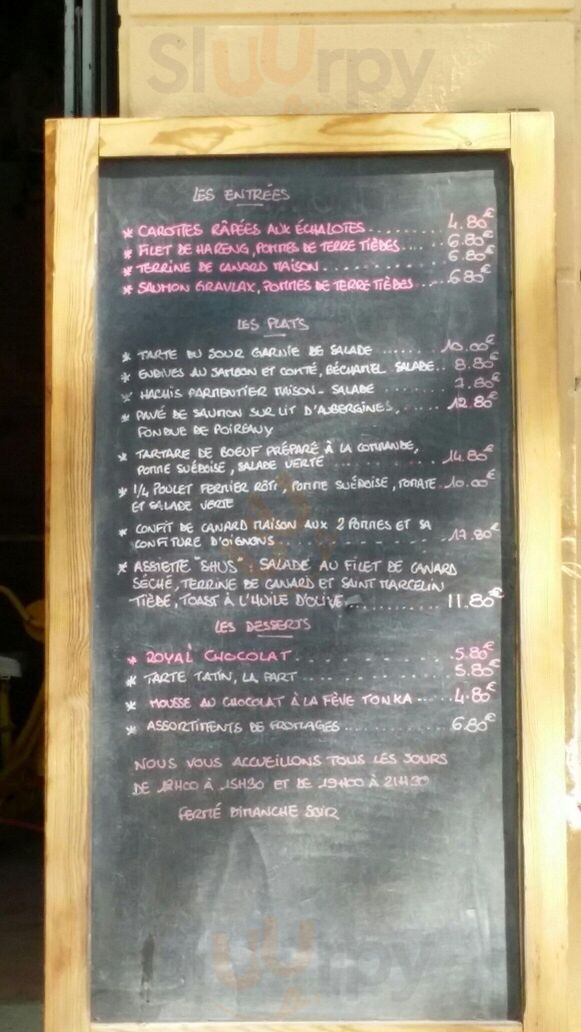 Slurrpy
LES ENTRÉES
* CAROTTES RÂPÉES AUX ÉCHALOTES........ 4.80€
* FILET DE HARENG, POMMES DE TERRE TIÈDES.... 6.80€
* TERRINE DE CANARD MAISON............. 6.80€
* SAUMON GRAVLAX, POMMES DE TERRE TIÈDES.....6.80€
LES PLATS
* TARTE DU JOUR GARNIE DE SALADE ....... 10.00€
* ENDIVES AU JAMBON ET COMTÉ, BÉCHAMEL SALADE.. 8.80€
* HACHIS PARMENTIER MAISON - SALADE ....... 7.80€
* PAVÉ DE SAUMON SUR LIT D'AUBERGINES, ..... 12.80€
FONDUE DE POIREAUX
* TARTARE DE BOEUF PRÉPARÉ À LA COMMANDE,
POMME SUÉDOISE, SALADE VERTE ........... 14.80€
* 1/4 POULET FERMIER RÔTI, POMME SUÉDOISE, TOMATE. 10.00€
ET SALADE VERTE
* CONFIT DE CANARD MAISON AUX 2 POMMES ET SA
CONFITURE D'OIGNONS.................. 17.80€
* ASSIETTE "SHUS": SALADE AU FILET DE CANARD
SÉCHÉ, TERRINE DE CANARD ET SAINT MARCELIN
TIÈDE, TOAST À L'HUILE D'OLIVE.......... 11.80€
LES DESSERTS
* ROYAL CHOCOLAT.............. 5.80€
* TARTE TATIN, LA PART .............. 5.80€
* MOUSSE AU CHOCOLAT À LA FÈVE TONKA..... 4.80€
* ASSORTIMENTS DE FROMAGES .......... 6.80€
NOUS VOUS ACCUEILLONS TOUS LES JOURS
DE 12H00 À 15H30 ET DE 19H00 À 21H30
FERMÉ DIMANCHE SOIR